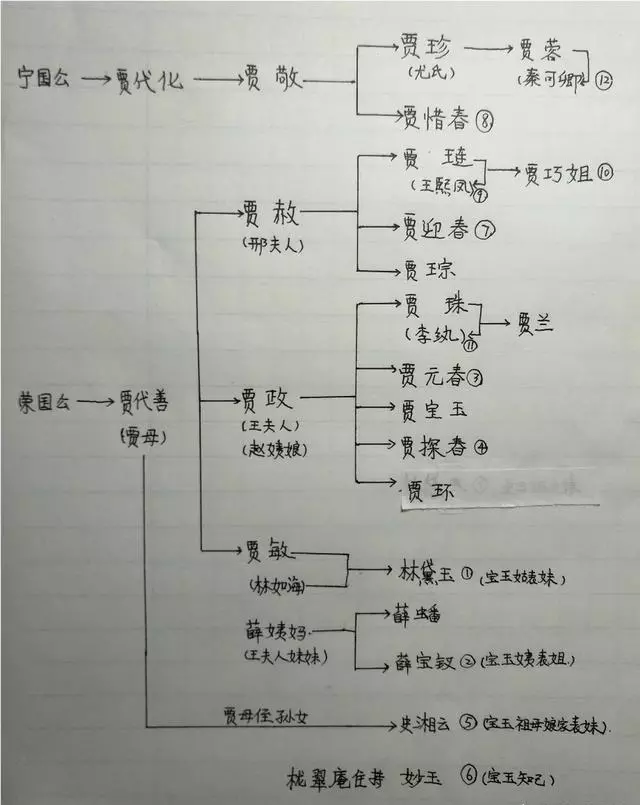 贾珍 贾蓉
宁国公 贾代化 贾敬 (尤氏) (秦可卿) ⑫
贾惜春 ⑧
贾琏
(王熙凤) ⑨ 贾巧姐 ⑩
贾赦
(邢夫人) 贾迎春 ⑦
贾琮
贾珠
(李纨) ⑪ 贾兰
贾元春 ③
荣国公 贾代善 贾政 贾宝玉
(贾母) (王夫人)
(赵姨娘) 贾探春 ④
贾环
贾敏
(林如海) 林黛玉 ① (宝玉姑表妹)
薛姨妈 薛蟠
(王夫人妹妹) 薛宝钗 ② (宝玉姨表姐)
贾母侄孙女 史湘云 ⑤ (宝玉祖母娘家表妹)
栊翠庵住持 妙玉 ⑥ (宝玉知己)